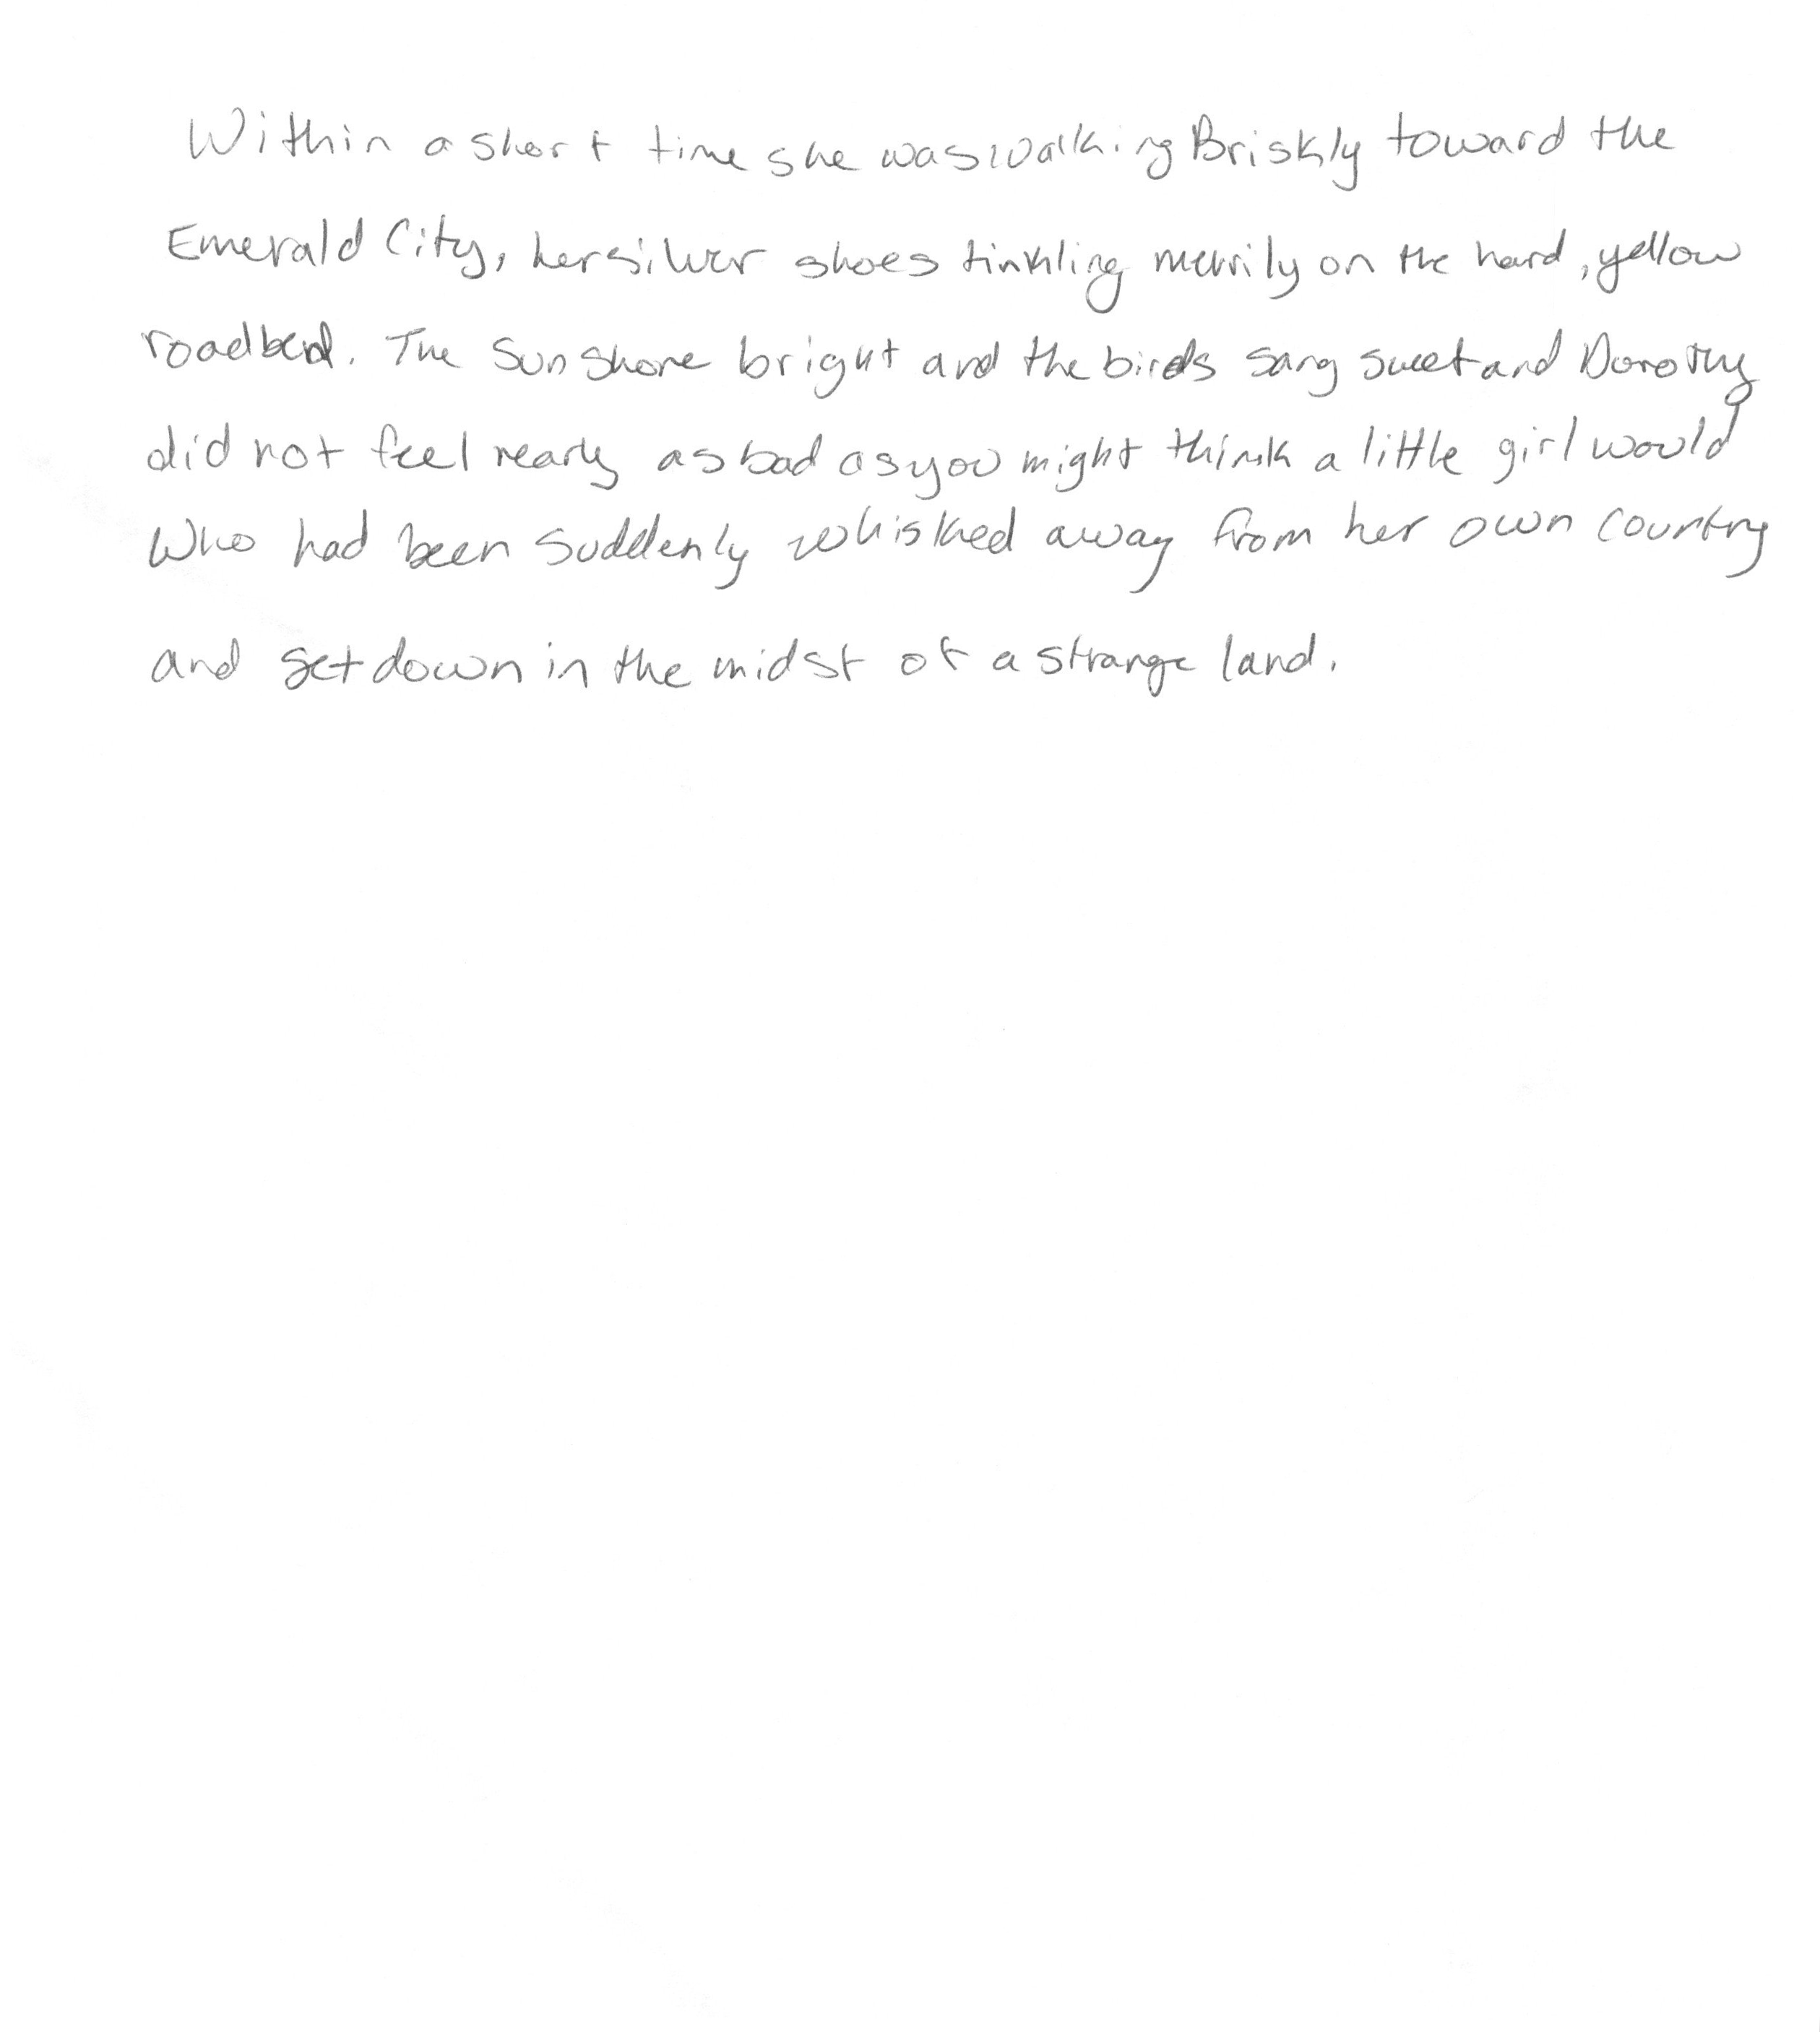 Within a short time she was walking Briskly toward the
Emerald City, her silver shoes tinkling merrily on the hard, yellow
roadbed. The sun shone bright and the birds sang sweet and Dorothy
did not feel nearly as bad as you might think a little girl would
Who had been suddenly whisked away from her own country
and set down in the midst of a strange land.